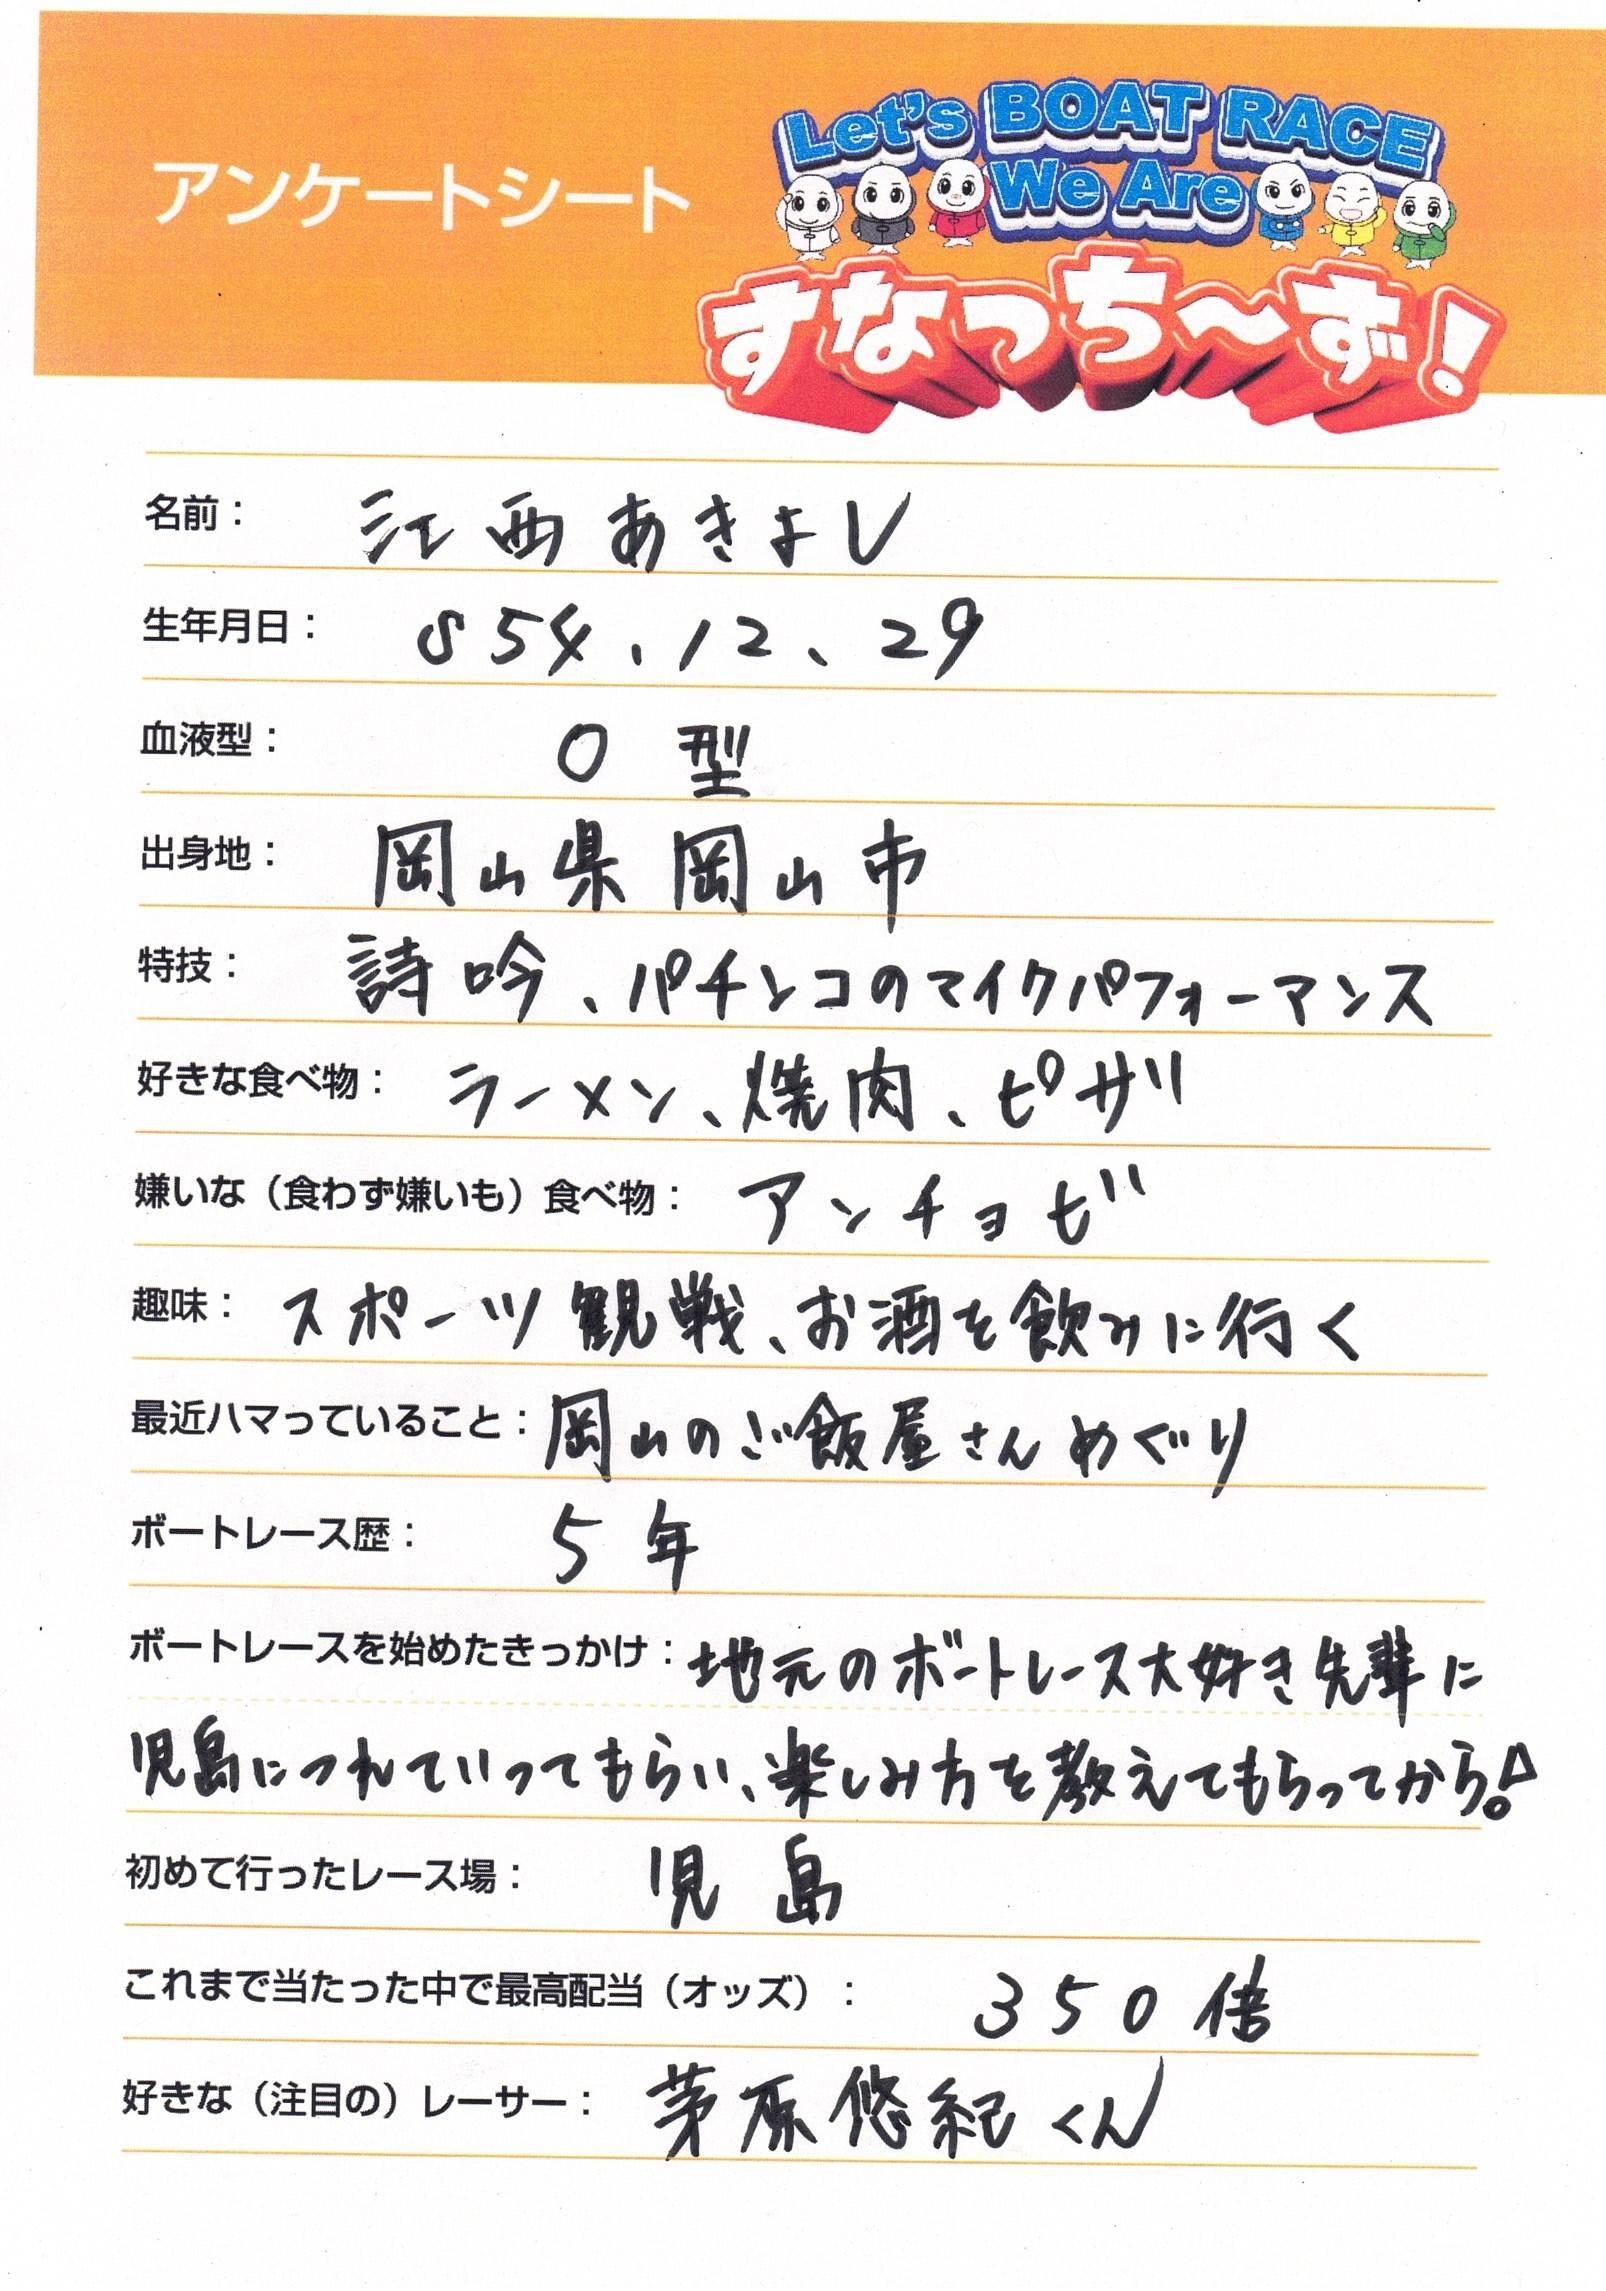 アンケートシート
Let's BOAT RACE
We Are
すなっち〜ず!
名前： 江西あきよし
生年月日： S54.12.29
血液型： O型
出身地： 岡山県岡山市
特技： 詩吟、パチンコのマイクパフォーマンス
好きな食べ物： ラーメン、焼肉、ピザ
嫌いな（食わず嫌いも）食べ物： アンチョビ
趣味： スポーツ観戦、お酒を飲みに行く
最近ハマっていること： 岡山のご飯屋さんめぐり
ボートレース歴： 5年
ボートレースを始めたきっかけ： 地元のボートレース大好き先輩に
児島につれていってもらい、楽しみ方を教えてもらってから!
初めて行ったレース場： 児島
これまで当たった中で最高配当（オッズ）： 350倍
好きな（注目の）レーサー： 茅原悠紀くん